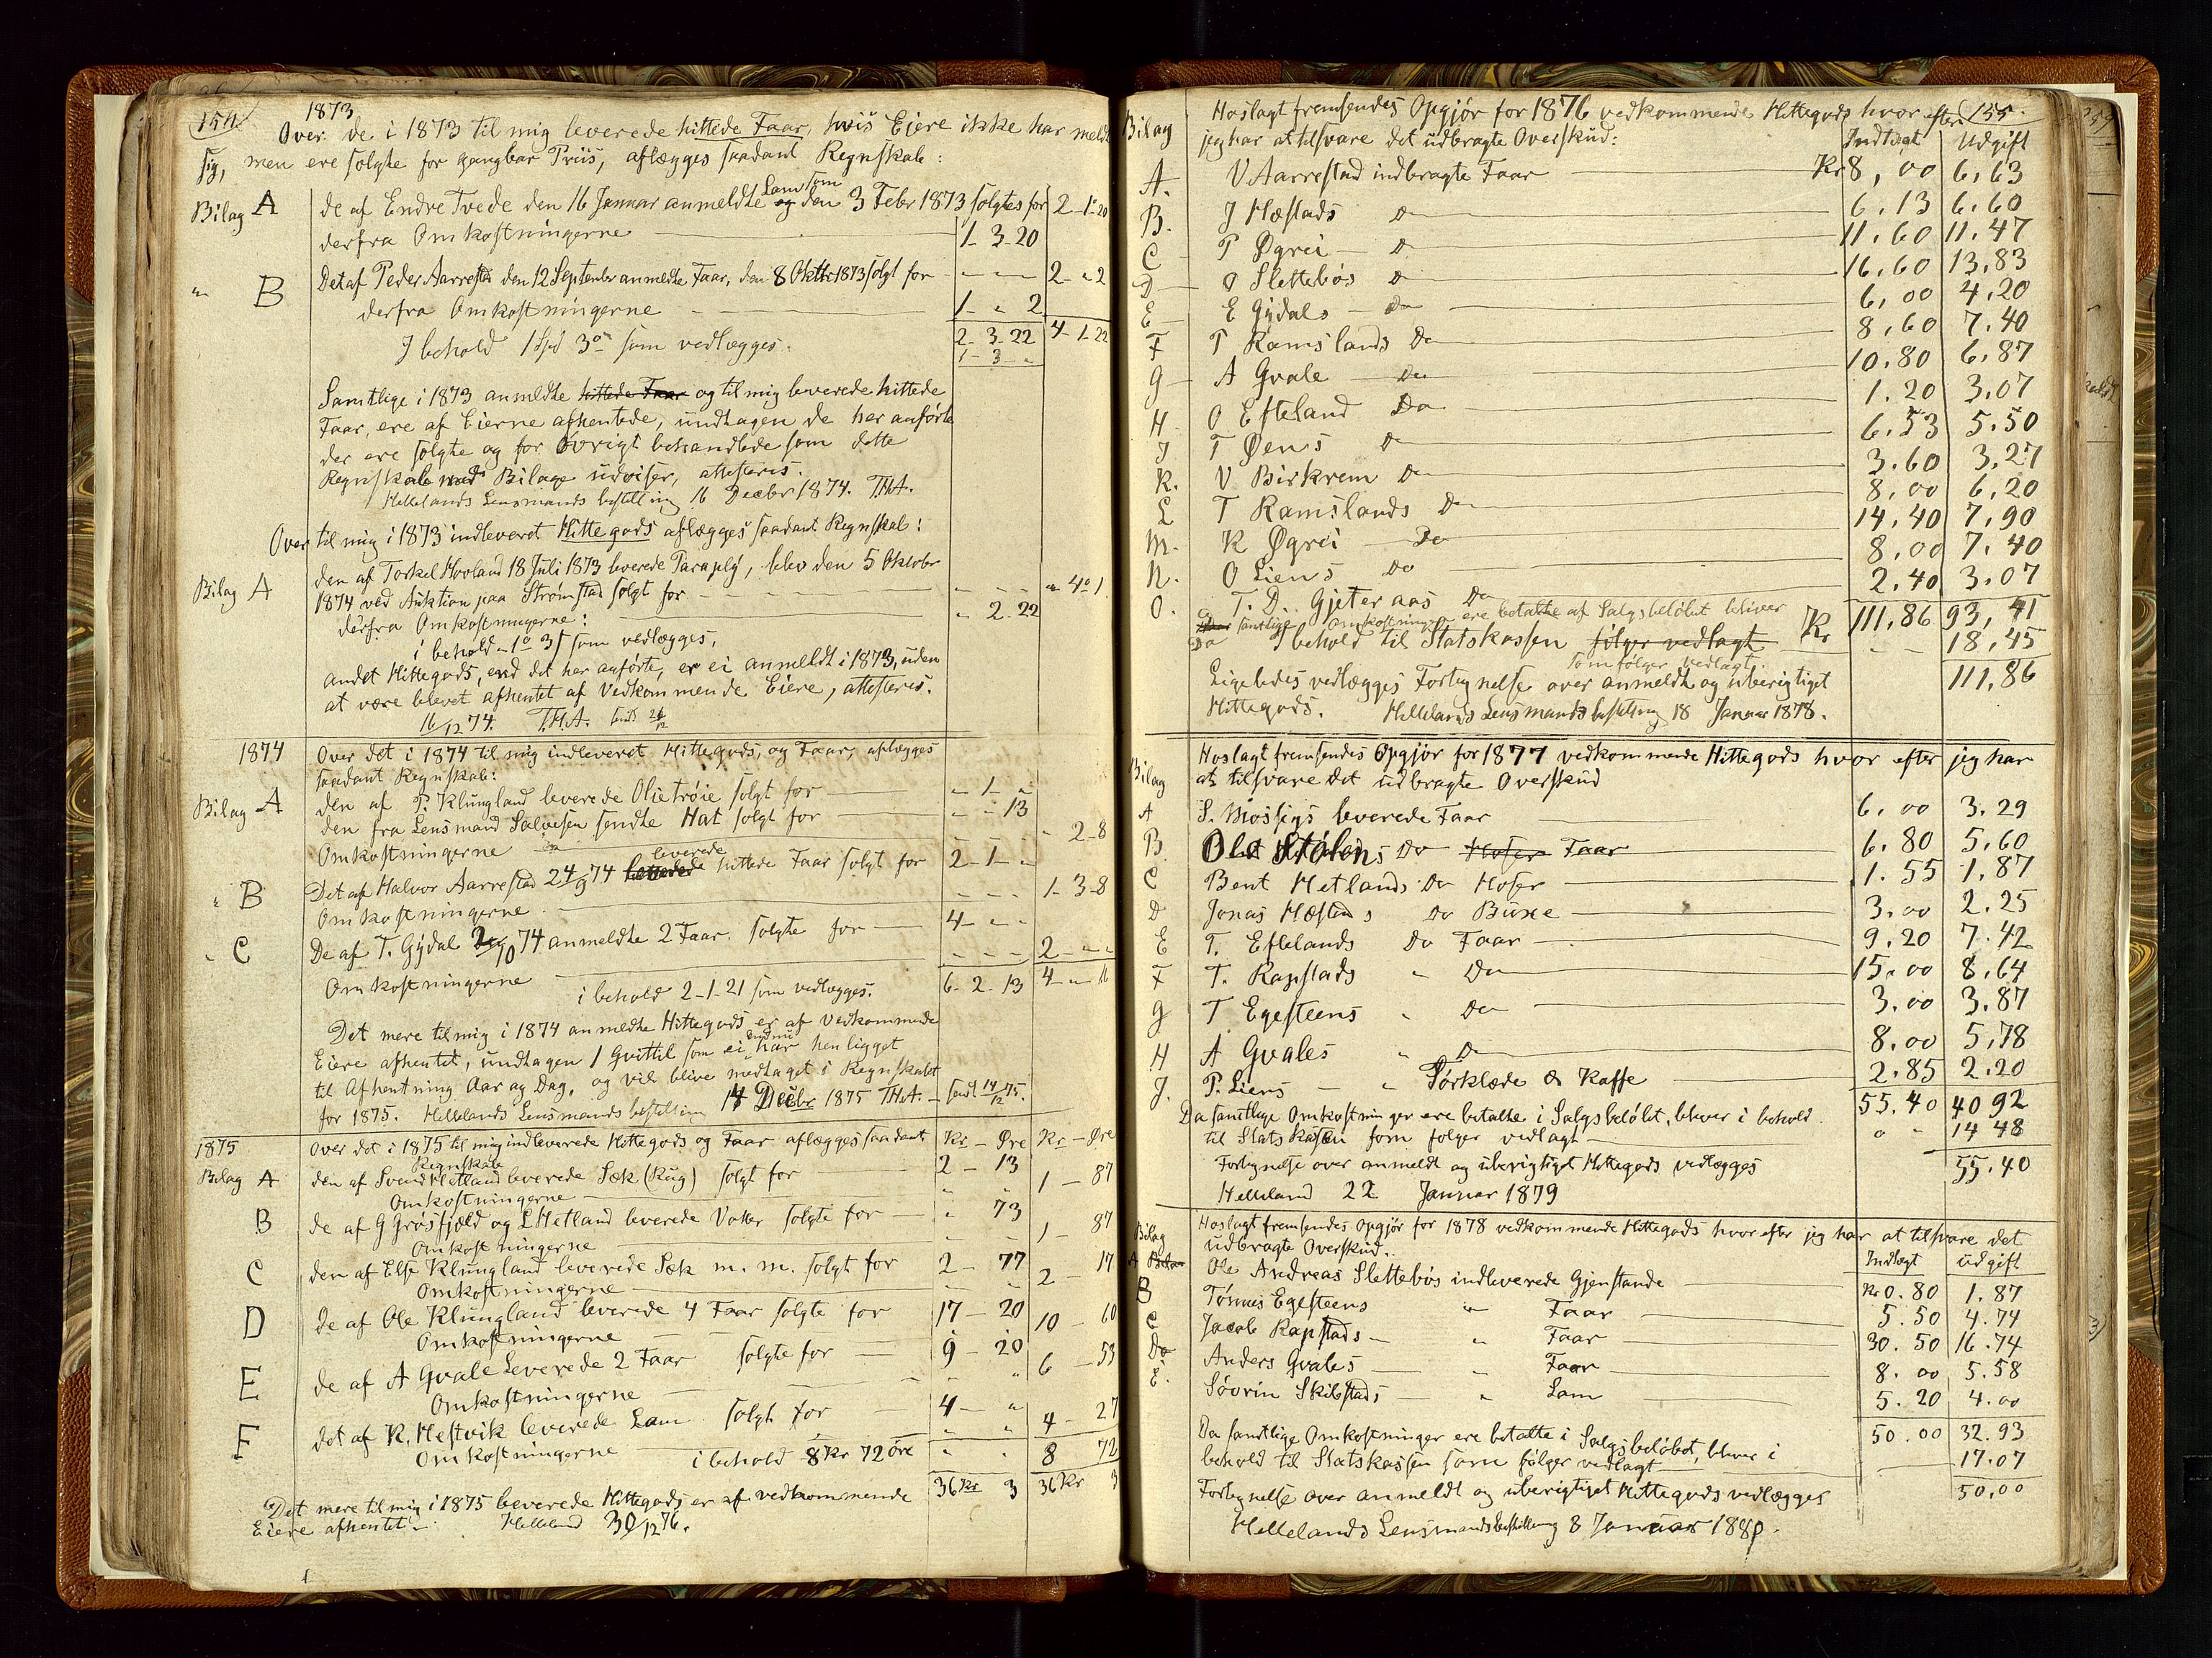 154
1873
Over de i 1873 til mig leverede hittede Faar, hvis Eiere ikke har meldt
sig, men ere solgte for gangbar Priis, aflægges saadant Regnskab:
Bilag A de af Endre Tvede den 16 Januar anmeldte Lam som og den 3 Febr 1873 solgtes for 2-1-20
derfra Omkostningerne 1-3-20
" B Det af Peder Aarrestad den 12 September anmeldte Faar, den 8 Oktbr 1873 solgt for - - - 2-"-2
derfra Omkostningerne 1-"-2
I behold 1 Spd 3 ort som vedlægges. 2-3-22 4-1-22
1-3-"
Samtlige i 1873 anmeldte hittede Faar og til mig leverede hittede
Faar, ere af Eierne afhentede, undtagen de her anførte
der ere solgte og for Øvrigt behandlede som dette
Regnskab med Bilage udviser, attesteres.
Hellelands Lensmands bestilling 16 Decbr 1874. T.H.A.
Over til mig i 1873 indleveret Hittegods aflægges saadant Regnskab:
Bilag A den af Torkel Hovland 18 Juli 1873 leverede Paraply, blev den 5 Oktobr
1874 ved Auktion paa Strømstad solgt for - - - " 4-1
derfra Omkostningerne: " 2-22
i behold - 1 o 3 s som vedlægges,
andet Hittegods, end det her anførte, er ei anmeldt i 1873, uden
at være blevet afhentet af Vedkommende Eiere, attesteres.
16/12 74. T.H.A. sendt 26/12
1874 Over det i 1874 til mig indleveret Hittegods, og Faar, aflægges
saadant Regnskab:
Bilag A den af P. Klungland leverede Olietrøie solgt for " 1 - "
den fra Lensmand Salvesen sendte Hat solgt for " - " 13
Omkostningerne " 2-8
" B Det af Halvor Aarrestad 24/9 74 leverede hittede Faar solgt for 2-1-"
Omkostningerne - - - 1-3-8
" C De af T. Gydal 2/10 74 anmeldte 2 Faar solgte for 4-"-"
Omkostningerne - - - 2-"-"
i behold 2-1-21 som vedlægges. 6-2-13 4-"-16
Det mere til mig i 1874 anmeldte Hittegods er af Vedkommende
Eiere afhentet, undtagen 1 Qvittil som ei endnu har henligget
til Afhentning Aar og Dag, og vil blive medtaget i Regnskabet
for 1875. Hellelands Lensmands bestilling 14 Decbr 1875 T.H.A. - sendt 14/12 75.
1875 Over det i 1875 til mig indleverede Hittegods og Faar aflægges saadant Kr - Øre Kr - Øre
Regnskab
Bilag A den af Svend Hetland leverede Sæk (Rug) solgt for 2 - 13
Omkostningerne 1 - 87
B de af G Grøsfjeld og L Hetland leverede Votter solgte for " 73
Omkostningerne 1 - 87
C den af Else Klungland leverede Sæk m. m. solgt for 2 - 77
Omkostningerne 2 - 17
D de af Ole Klungland leverede 4 Faar solgte for 17 - 20
Omkostningerne 10 - 60
E de af A Gvale Leverede 2 Faar solgte for 9 - 20
Omkostningerne 6 - 53
F det af K. Hestvik leverede Lam solgt for 4 - "
Omkostningerne 4 - 27
i behold 8 Kr 72 øre 8 72
36 Kr 3 36 Kr 3
Det mere til mig i 1875 leverede Hittegods er af vedkommende
Eiere afhentet. Helleland 30/12 76.
155.
Bilag Hoslagt fremsendes Opgjør for 1876 vedkommende Hittegods hvorefter
jeg har at tilsvare det udbragte Overskud: Indtægt Udgift
A. V Aarrestad indbragte Faar Kr 8,00 6,63
B. J Hæstads Do 6.13 6.60
C T Øgrei Do 11.60 11.47
D O Slettebøs Do 16.60 13.83
E E Gydals Do 6,00 4,20
F T Ramslands Do 8,60 7.40
G A Gvale Do 10.80 6,87
H O Efteland Do 1.20 3.07
J T Øens Do 6.53 5.50
K. V Birkrem Do 3.60 3.27
L T Ramslands Do 8,00 6,20
M. K Øgrei Do 14,40 7,90
N. O Liens Do 8,00 7.40
O. T. D. Gjeteraas Do 2.40 3.07
Da samtlige Omkostninger ere betalte af Salgsbeløbet bliver Kr 111,86 93,41
I behold til Statskassen følger vedlagt - - 18,45
som følger vedlagt. 111,86
Ligeledes vedlægges Fortegnelse over anmeldt og uberigtiget
Hittegods. Hellelands Lensmandsbestilling 18 Januar 1878.
Bilag Hoslagt fremsendes Opgjør for 1877 vedkommende Hittegods hvor efter jeg har
at tilsvare det udbragte Overskud
A S. Mossigs leverede Faar 6.00 3.29
B. Ole Stølens Do Hoser Faar 6.80 5.60
C Bent Hetlands Do Hoser 1.55 1.87
D Jonas Hæstads Do Buxe 3.00 2.25
E T. Eftelands Do Faar 9.20 7.42
F T. Rapstads " Do 15.00 8.64
G T Egesteens " Do 3.00 3.87
H A Gvales " Do 8.00 5,78
J. P. Liens " Tørklæde & Kaffe 2.85 2.20
Da samtlige Omkostninger ere betalte i Salgsbeløbet, bliver i behold 55.40 40 92
til Statskassen som følger vedlagt " - 14 48
Fortegnelse over anmeldt og uberigtiget Hittegods vedlægges 55.40
Helleland 22 Januar 1879
Bilag Hoslagt fremsendes Opgjør for 1878 vedkommende Hittegods hvor efter jeg har at tilsvare det
udbragte Overskud. Indtægt udgift
A Ole Andreas Slettebøs indleverede Gjenstande Kr 0.80 1.87
B Tønnes Egesteens " Faar 5.50 4.74
C Jacob Rapstads " Faar 30.50 16.74
D Anders Gvales " Faar 8.00 5.58
E. Søvrin Skibstads " Lam 5.20 4.00
Da samtlige Omkostninger ere betalte i Salgsbeløbet, bliver i 50.00 32.93
behold til Statskassen som følger vedlagt 17.07
Fortegnelse over anmeldt og uberigtiget Hittegods vedlægges 50,00
Hellelands Lensmandsbestilling 8 Januar 1880.